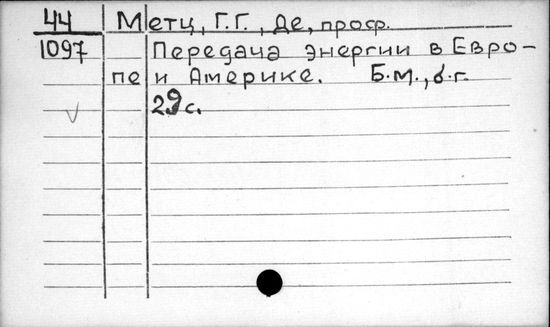 44 Метц, Г.Г., Де, проф.
1097 Передача энергии в Евро-
пе и Америке. Б.м., б.г.
29 с.